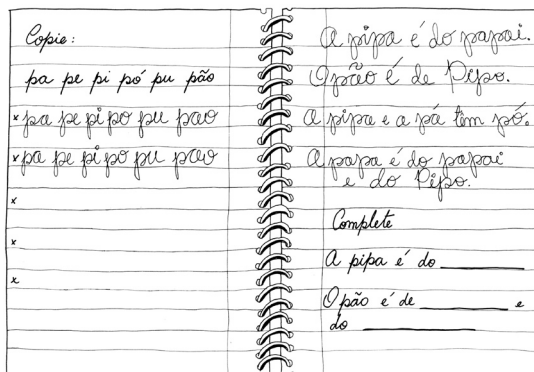 Copie:
pa pe pi pó pu pão
x pa pe pi po pu pao
x pa pe pi po pu pao
x
x
x
A pipa é do papai.
O pão é de Pipo.
A pipa e a pá têm pó.
A papa é do papai
e do Pipo.
Complete
A pipa é do ____________
O pão é de ____________ e
do ____________